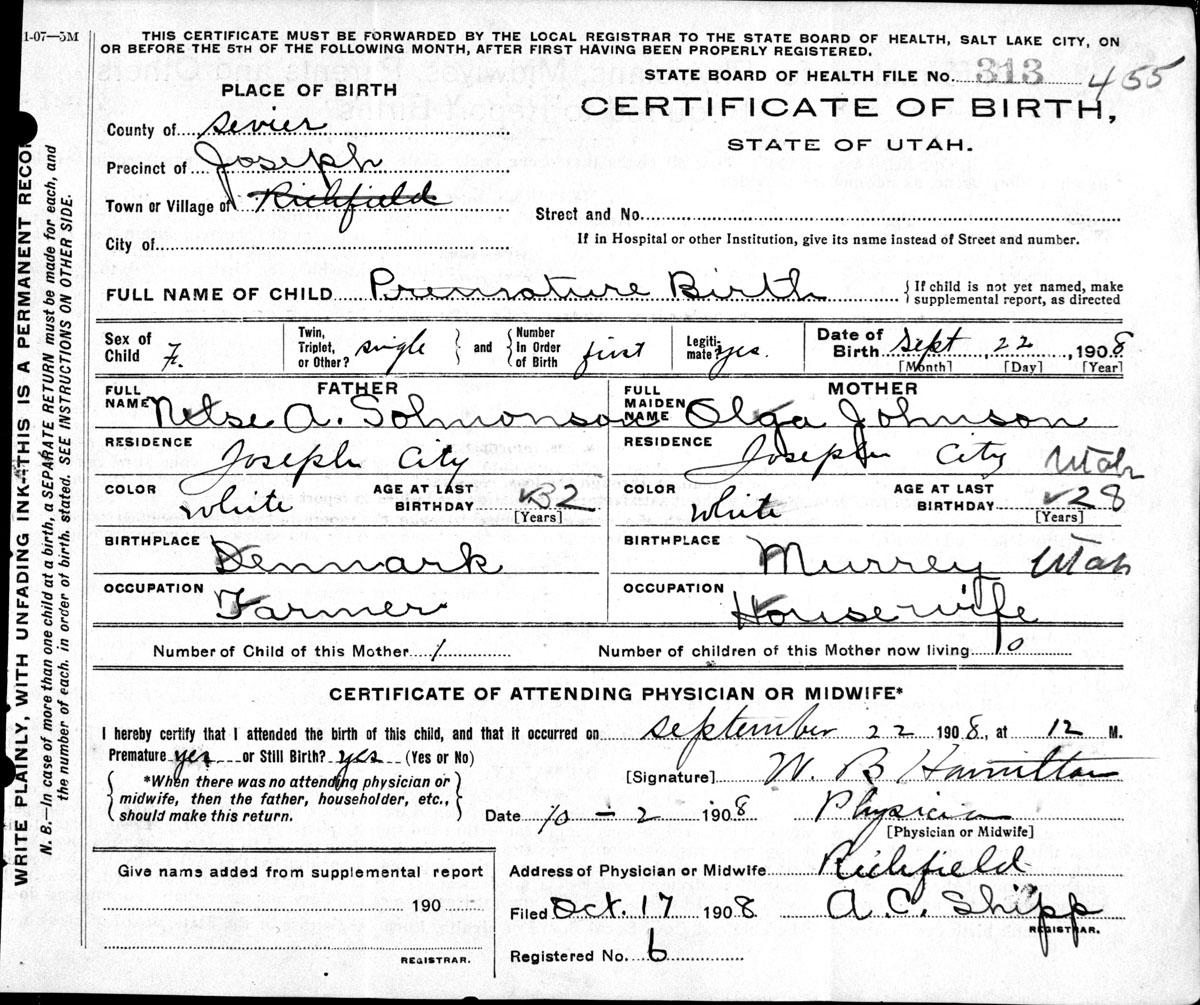 1-07—5M
THIS CERTIFICATE MUST BE FORWARDED BY THE LOCAL REGISTRAR TO THE STATE BOARD OF HEALTH, SALT LAKE CITY, ON
OR BEFORE THE 5TH OF THE FOLLOWING MONTH, AFTER FIRST HAVING BEEN PROPERLY REGISTERED.
STATE BOARD OF HEALTH FILE No. 313 455
PLACE OF BIRTH
CERTIFICATE OF BIRTH,
STATE OF UTAH.
County of Sevier
Precinct of Joseph
Town or Village of Richfield
Street and No.
City of
If in Hospital or other Institution, give its name instead of Street and number.
FULL NAME OF CHILD Premature Birth { If child is not yet named, make
supplemental report, as directed
Sex of Child F. Twin, Triplet, or Other? single and Number In Order of Birth first Legiti- mate? yes. Date of Birth Sept 22, 1908
[Month] [Day] [Year]
FATHER MOTHER
FULL NAME Nelse A. Solmonson FULL MAIDEN NAME Olga Johnson
RESIDENCE Joseph City RESIDENCE Joseph City Utah
COLOR White AGE AT LAST BIRTHDAY 32 [Years] COLOR White AGE AT LAST BIRTHDAY 28 [Years]
BIRTHPLACE Denmark BIRTHPLACE Murrey Utah
OCCUPATION Farmer OCCUPATION Housewife
Number of Child of this Mother 1 Number of children of this Mother now living 0
CERTIFICATE OF ATTENDING PHYSICIAN OR MIDWIFE*
I hereby certify that I attended the birth of this child, and that it occurred on September 22 1908, at 12 M.
Premature yes or Still Birth? yes (Yes or No)
*When there was no attending physician or
midwife, then the father, householder, etc.,
should make this return.
[Signature] W. B Hamilton
Date 10 - 2 1908 Physician
[Physician or Midwife]
Give name added from supplemental report
190
REGISTRAR.
Address of Physician or Midwife Richfield
Filed Oct. 17 1908 A. C. Shipp
REGISTRAR.
Registered No. 6
WRITE PLAINLY, WITH UNFADING INK—THIS IS A PERMANENT RECOR
N. B.—In case of more than one child at a birth, a SEPARATE RETURN must be made for each, and
the number of each, in order of birth, stated. SEE INSTRUCTIONS ON OTHER SIDE.